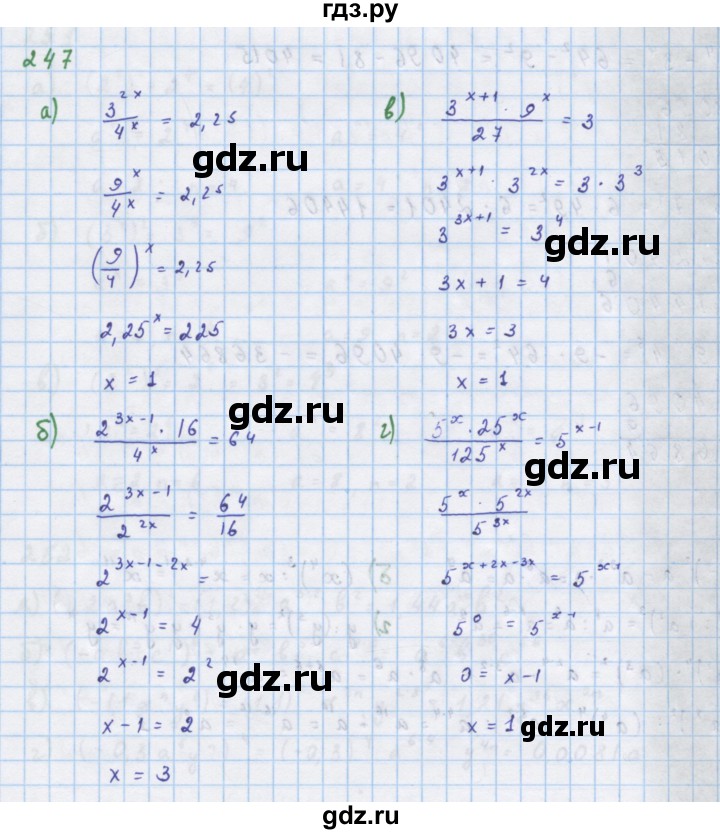 гдз.ру
247
а) 3^2x / 4^x = 2,25
9^x / 4^x = 2,25
(9/4)^x = 2,25
2,25^x = 225
x = 1
б) 2^3x-1 · 16 / 4^x = 64
2^3x-1 / 2^2x = 64/16
2^3x-1-2x =
2^x-1 = 4
2^x-1 = 2^2
x-1 = 2
x = 3
в) 3^x+1 · 9^x / 27 = 3
3^x+1 · 3^2x = 3 · 3^3
3^3x+1 = 3^4
3x + 1 = 4
3x = 3
x = 1
г) 5^x · 25^x / 125^x = 5^x-1
5^x · 5^2x / 5^3x
5^x+2x-3x = 5^x-1
5^0 = 5^x-1
0 = x-1
x = 1
gdz.ru
gdz.ru
gdz.ru
gdz.ru
gdz.ru
gdz.ru
gdz.ru
gdz.ru